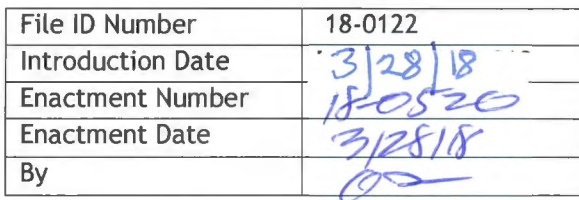 File ID Number 18-0122
Introduction Date 3/28/18
Enactment Number 18-0520
Enactment Date 3/28/18
By